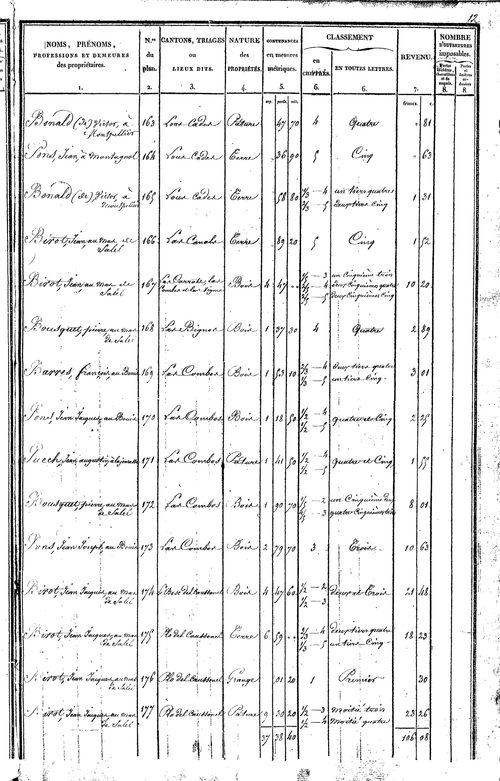 12
NOMS, PRÉNOMS,
PROFESSIONS ET DEMEURES
des propriétaires.
N.os
du
plan.
CANTONS, TRIAGES
ou
LIEUX DITS.
NATURE
des
PROPRIÉTÉS.
CONTENANCES
en mesures
métriques.
CLASSEMENT
en
CHIFFRES.
EN TOUTES LETTRES.
REVENU.
NOMBRE
D'OUVERTURES
imposables.
1. 2. 3. 4. 5. 6. 6. 7. 8. 8.
francs. c.
Bonald (de) Victor, à Montpellier 163 Lous Cades Pature 47 70 4 Quatre 81
Pons, Jean à Montagnol 164 Lous Cades Terre 36 90 5 Cinq 63
Bonald (de) Victor, à Montpellier 165 Lous Cades Terre 58 80 2/3 — 4 1/3 — 5 un tiers quatre deux tiers cinq 1 31
Birot, Jean, au mas de Salel 166 Terre 89 20 5 Cinq 1 52
Birot, Jean au mas de Salel 167 Bois 4 47 un cinquième trois deux cinquièmes quatre deux cinquièmes cinq 10 20
Bousquet, pierre, au mas de Salel 168 Bois 1 37 30 4 Quatre 2 89
Barres, françois, au 169 Las Combes Bois 1 53 10 2/3 — 4 1/3 — 5 deux tiers quatre un tiers Cinq 3 01
Pons, Jean Jacques, au 170 Las Combes Bois 1 18 50 1/2 — 4 1/2 — 5 quatre et Cinq 2 25
Puech, Jean augustin, à 171 Las Combes Pature 1 41 50 1/2 — 4 1/2 — 5 quatre et Cinq 1 55
Bousquet, pierre, au mas de Salel 172 Las Combes Bois 1 90 70 1/5 — 2 4/5 — 3 un Cinquième deux quatre Cinquièmes trois 8 01
Pons, Jean Joseph, au 173 Las Combes Bois 2 79 70 3 Trois 10 63
Birot, Jean Jacques, au mas de Salel 174 Bois 4 47 60 1/2 — 2 1/2 — 3 deux et Trois 21 48
Birot, Jean Jacques, au mas de Salel 175 Terre 6 59 2/3 — 4 1/3 — 5 deux tiers quatre un tiers Cinq 18 23
Birot, Jean Jacques, au mas de Salel 176 Grange 01 20 1 Premier 30
Birot, Jean Jacques, au mas de Salel 177 Pature 9 30 20 1/2 — 3 1/2 — 4 moitié trois moitié quatre 23 26
37 38 40 106 08